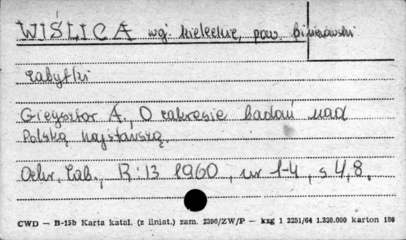 WIŚLICA wg. kieleckie, pow. Pińczowski
zabytki
Gieysztor A., O zakresie badań nad
Polską najstarszą.
Ochr. Zab., R: 13 1960, nr 1-4, s 4,8.
CWD — B-13b Karta katal. (z liniat.) zam. 2396/ZW/P — kzg 1 2251/64 1.338.000 karton 180